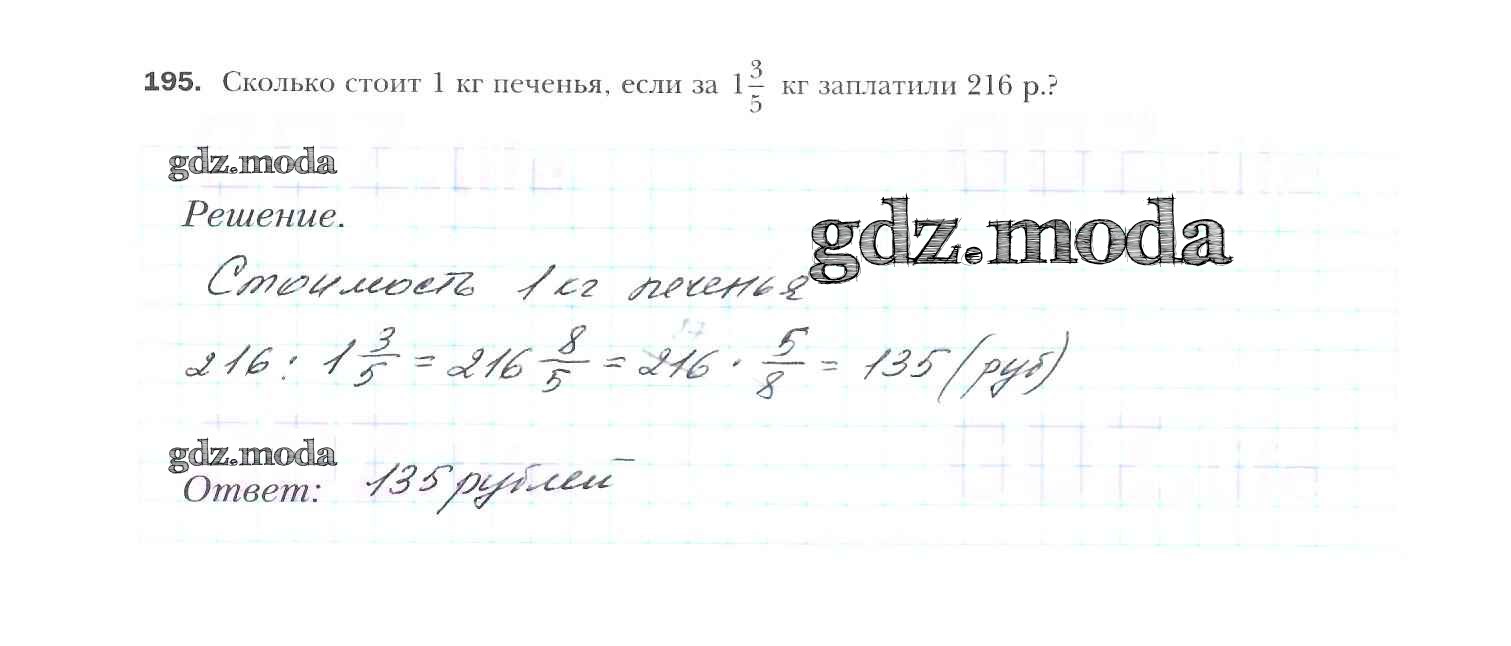 195. Сколько стоит 1 кг печенья, если за 1 3/5 кг заплатили 216 р.?
gdz.moda
Решение.
gdz.moda
Стоимость 1 кг печенья
216 : 1 3/5 = 216 8/5 = 216 · 5/8 = 135 (руб)
gdz.moda
Ответ: 135 рублей